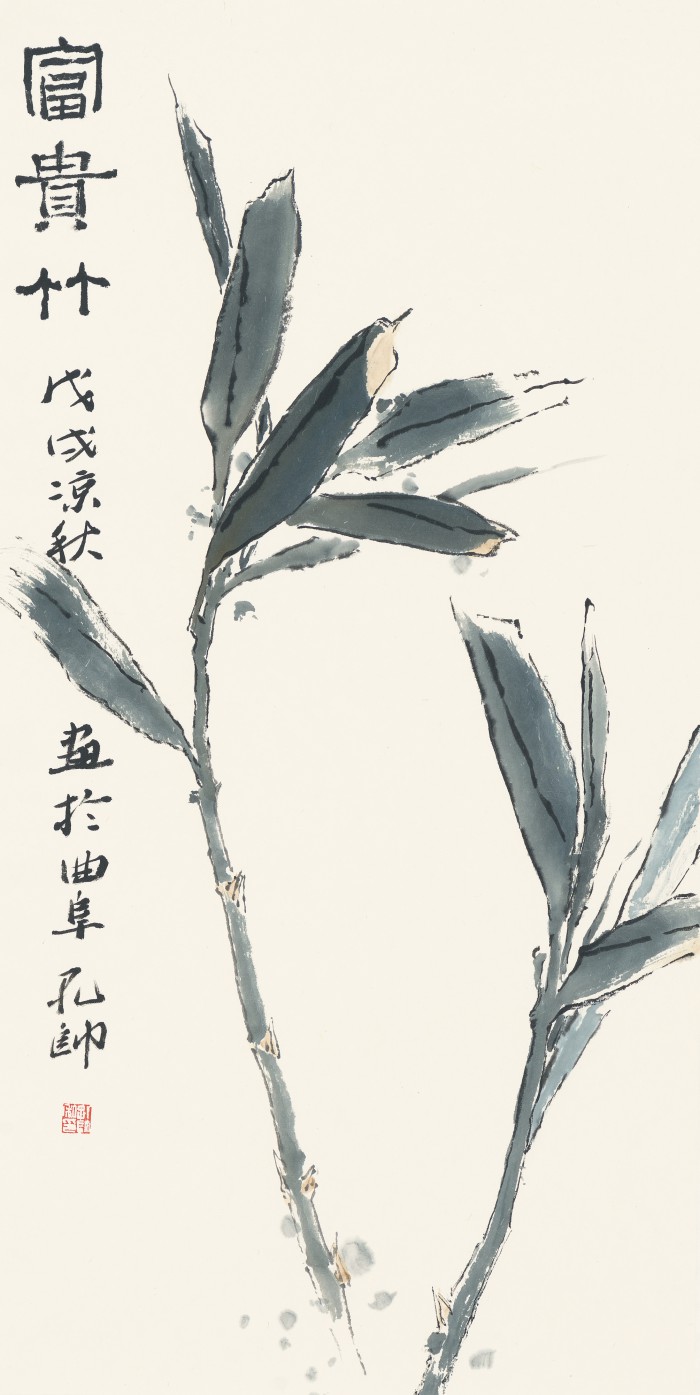 富貴竹
戊戌凉秋
画於曲阜孔帥